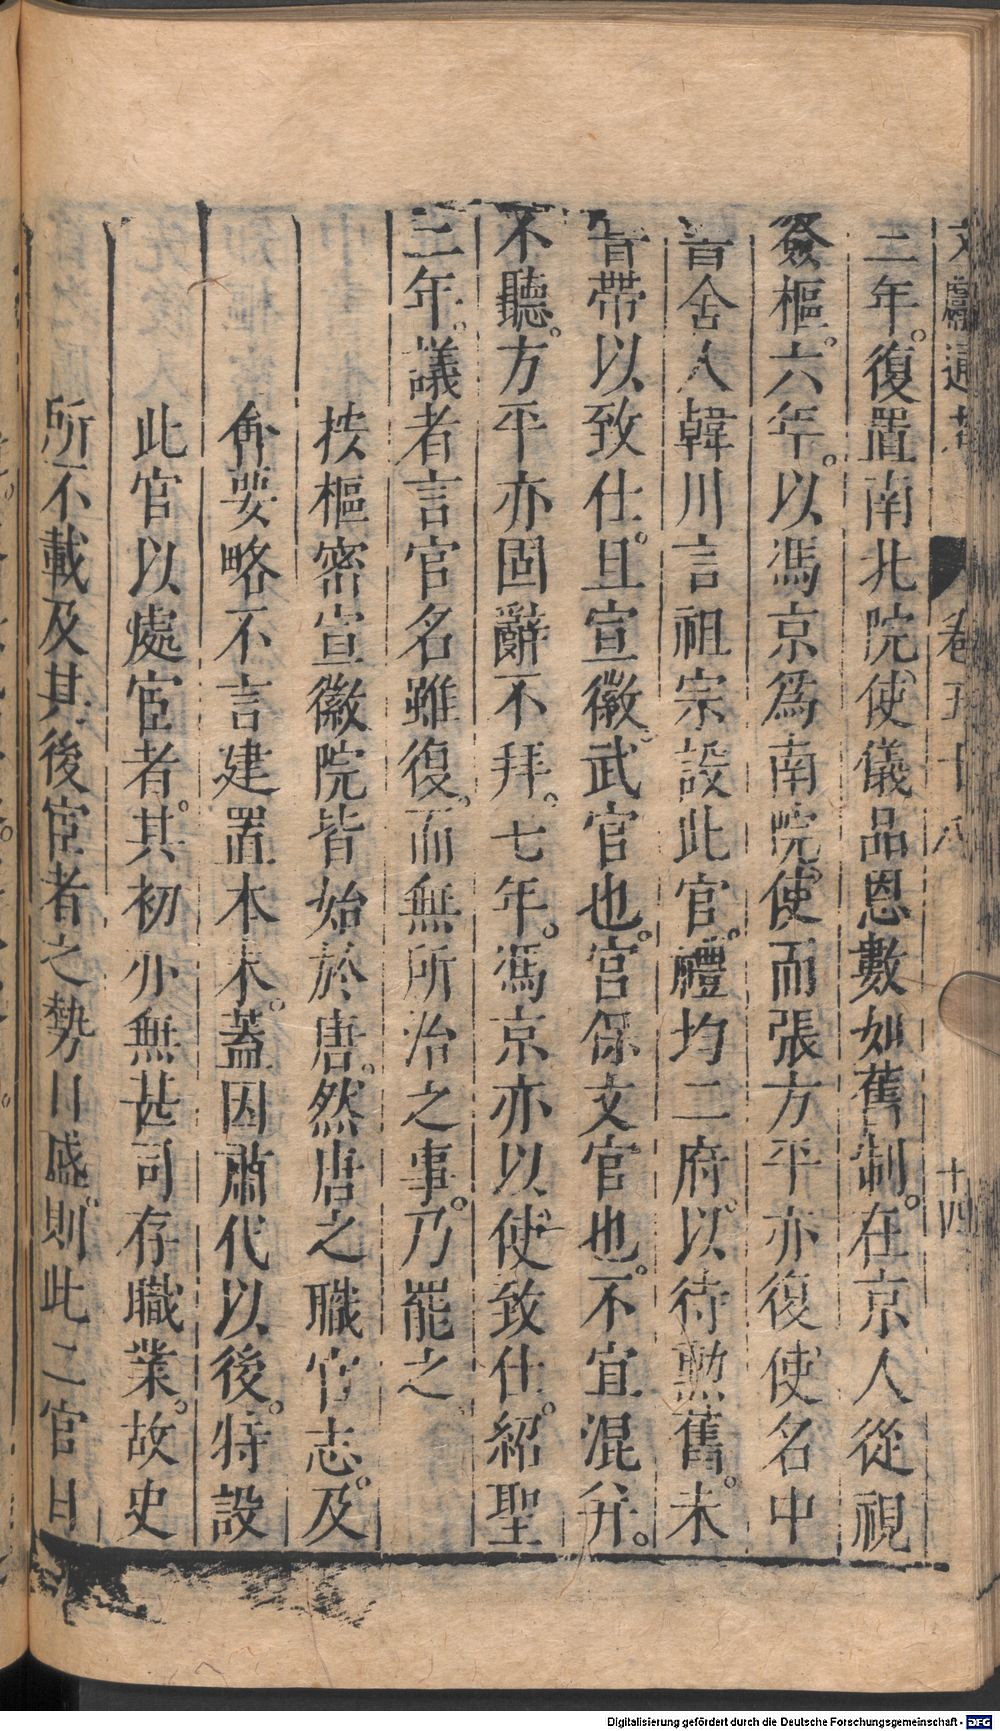 文獻通考 卷五十八 十四
三年。復置南北院使儀品恩數如舊制。在京人從視
僉樞。六年。以馮京爲南院使而張方平亦復使名中
書舍人韓川言祖宗設此官。禮均二府。以待勲舊。未
嘗帶以致仕。且宣徽。武官也。宫保文官也。不宜混并。
不聽。方平亦固辭不拜。七年。馮京亦以使致仕。紹聖
三年。議者言官名雖復。而無所治之事。乃罷之
按樞密宣徽院皆始於唐。然唐之職官志。及
㑹要略不言建置本末。蓋因肅代以後。特設
此官以處宦者。其初亦無甚司存職業。故史
所不載及其後宦者之勢日盛。則此二官日
Digitalisierung gefördert durch die Deutsche Forschungsgemeinschaft - DFG